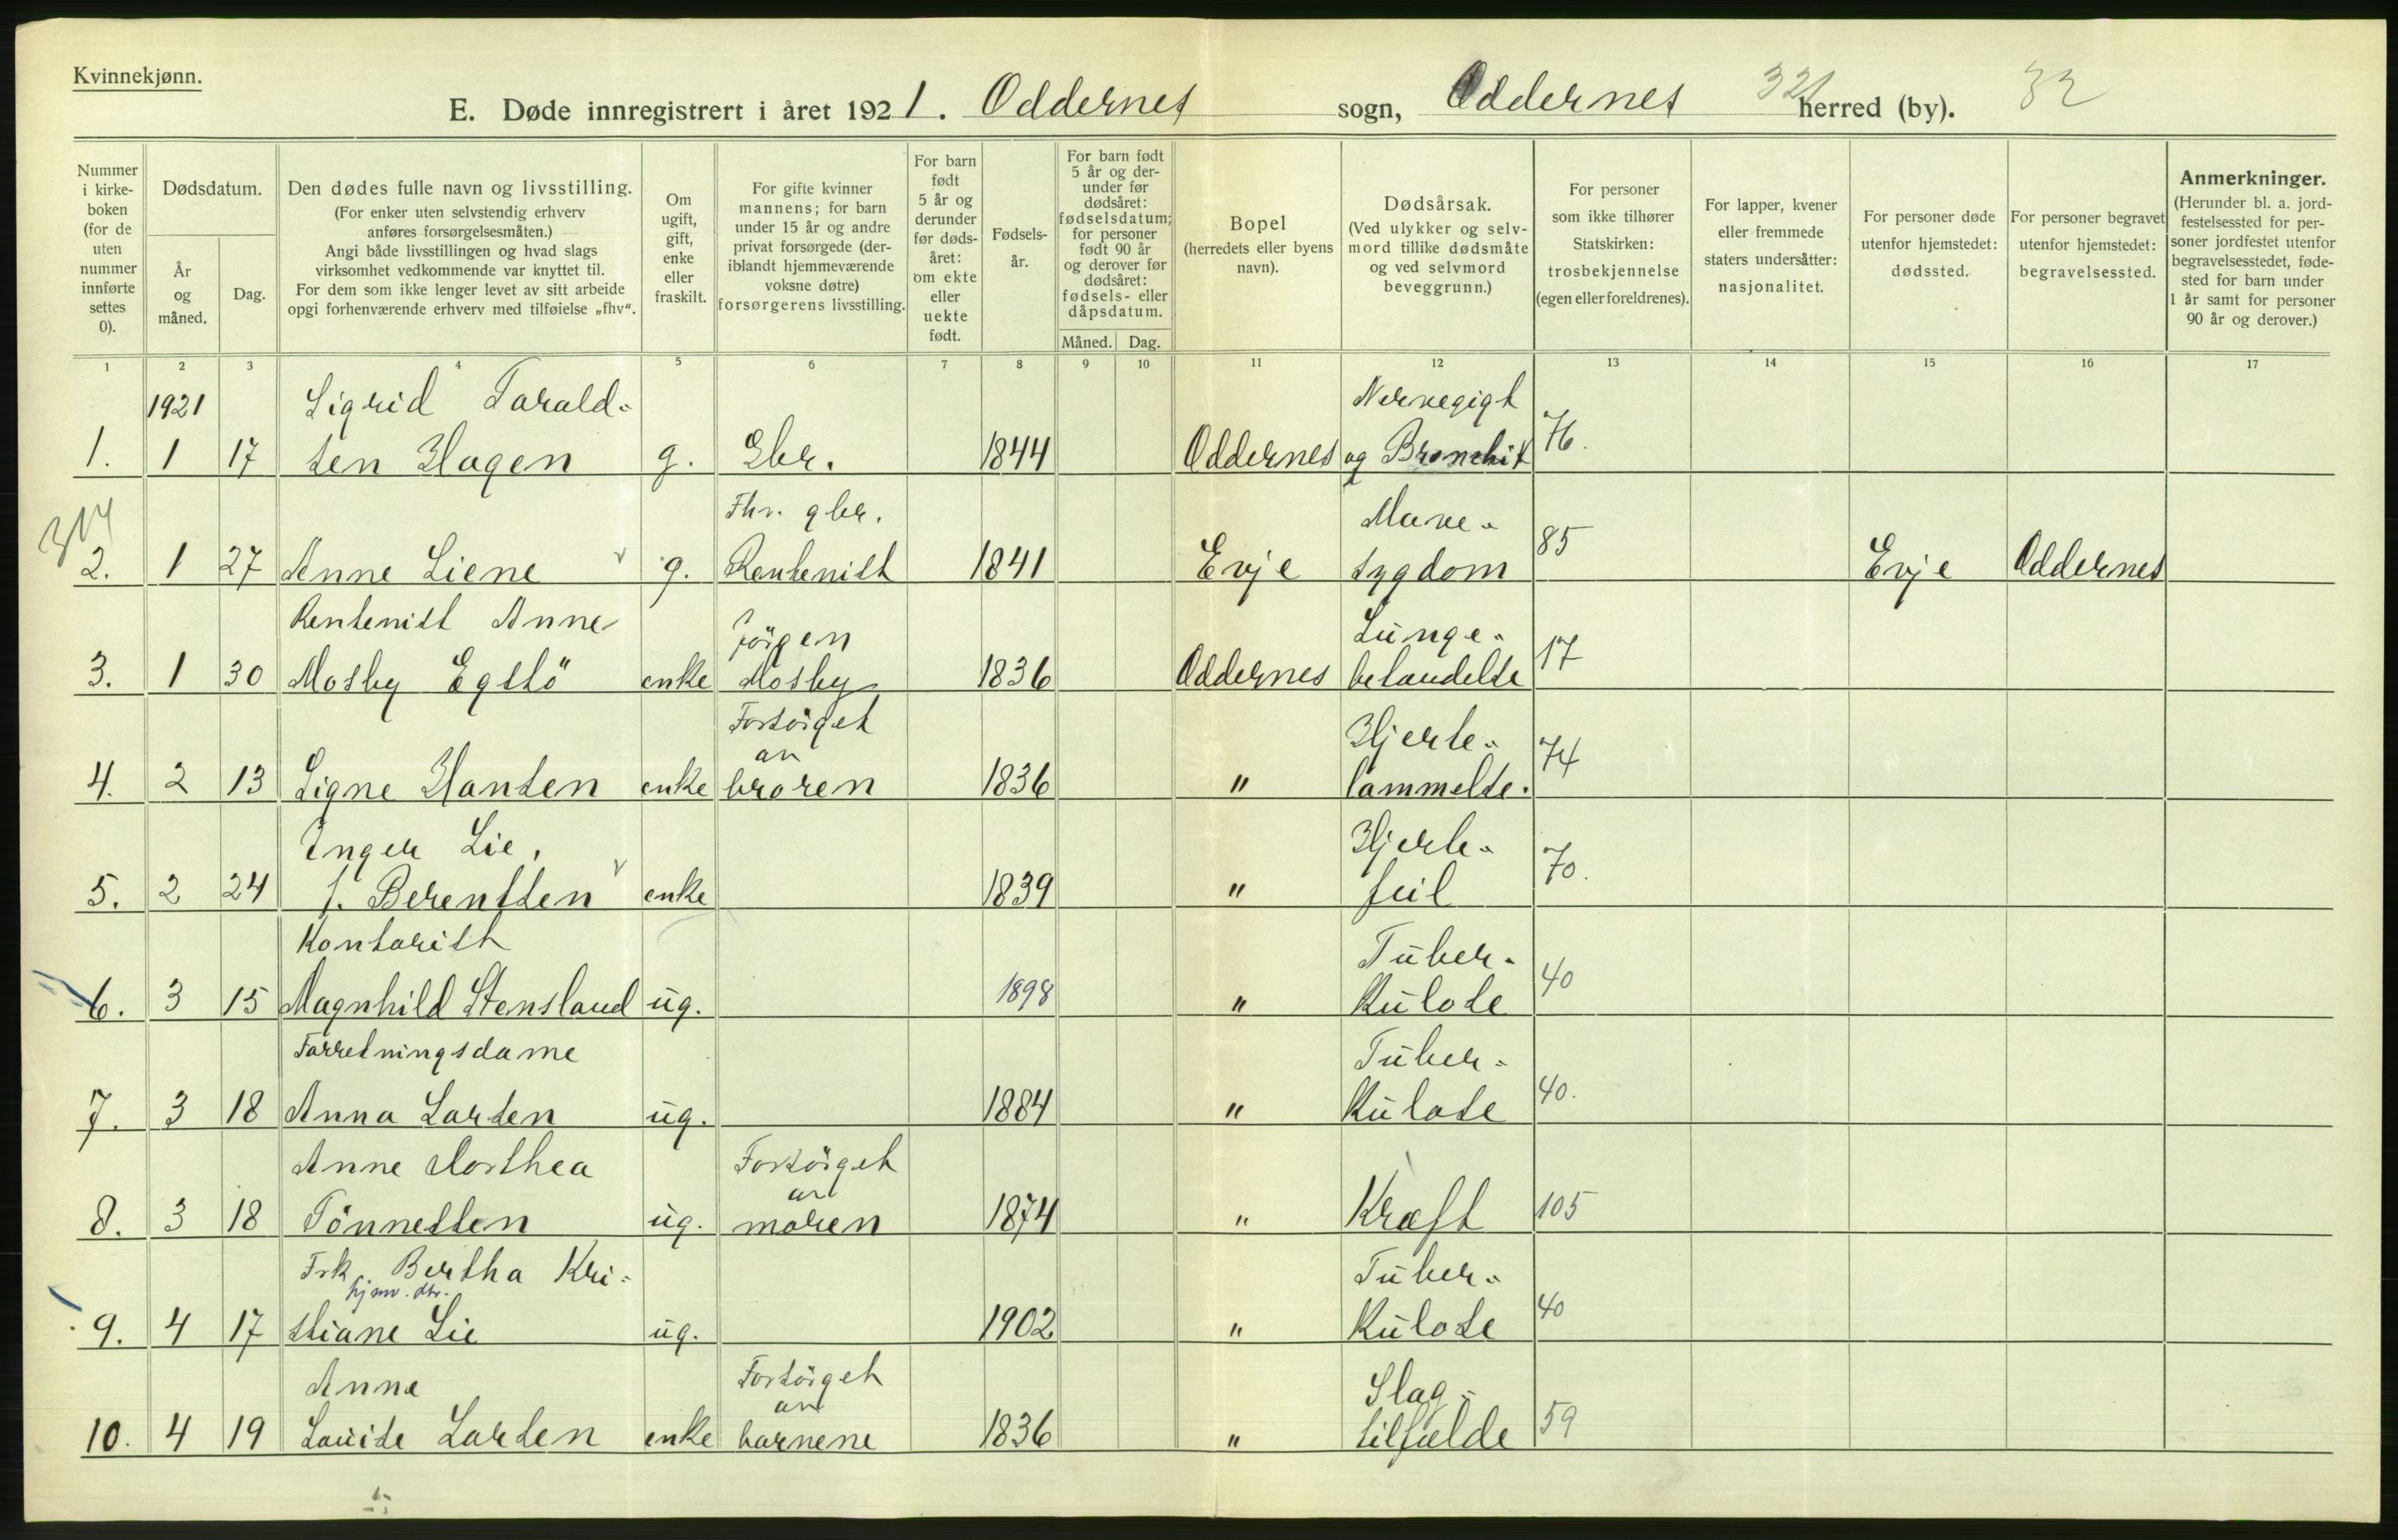 Kvinnekjønn.
E. Døde innregistrert i året 1921. Oddernes sogn, Oddernes herred (by).
321
32
Nummer i kirkeboken (for de uten nummer innførte settes 0).
Dødsdatum.
År og måned.
Dag.
Den dødes fulle navn og livsstilling.
(For enker uten selvstendig erhverv anføres forsørgelsesmåten.)
Angi både livsstillingen og hvad slags virksomhet vedkommende var knyttet til.
For dem som ikke lenger levet av sitt arbeide opgi forhenværende erhverv med tilføielse „fhv“.
Om ugift, gift, enke eller fraskilt.
For gifte kvinner mannens; for barn under 15 år og andre privat forsørgede (deriblandt hjemmeværende voksne døtre) forsørgerens livsstilling.
For barn født 5 år og derunder før dødsåret: om ekte eller uekte født.
Fødselsår.
For barn født 5 år og derunder før dødsåret: fødselsdatum; for personer født 90 år og derover før dødsåret: fødsels- eller dåpsdatum.
Måned. Dag.
Bopel (herredets eller byens navn).
Dødsårsak. (Ved ulykker og selvmord tillike dødsmåte og ved selvmord beveggrunn.)
For personer som ikke tilhører Statskirken: trosbekjennelse (egen eller foreldrenes).
For lapper, kvener eller fremmede staters undersåtter: nasjonalitet.
For personer døde utenfor hjemstedet: dødssted.
For personer begravet utenfor hjemstedet: begravelsessted.
Anmerkninger. (Herunder bl. a. jordfestelsessted for personer jordfestet utenfor begravelsesstedet, fødested for barn under 1 år samt for personer 90 år og derover.)
1 2 3 4 5 6 7 8 9 10 11 12 13 14 15 16 17
1921 Sigrid Tarald- Nervegigt
1. 1 17 sen Hagen g. Gbr. 1844 Oddernes og Bronchit 76.
314 Fhv. gbr. Mave-
2. 1 27 Anne Liene g. Rentenist 1841 Evje sygdom 85 Evje Oddernes
Rentenist Anne Jörgen Lunge-
3. 1 30 Mosby Egstö enke Mosby 1836 Oddernes betændelse 17
Forsörget av Hjerte-
4. 2 13 Signe Hansen enke broren 1836 " lammelse. 74
Inger Lie, Hjerte-
5. 2 24 f. Berentsen enke 1839 " feil 70.
Kontorist Tuber-
6. 3 15 Magnhild Stensland ug. 1898 " kulose 40
Forretningsdame Tuber-
7. 3 18 Anna Larsen ug. 1884 " kulose 40.
Anne Dorthea Forsörget av
8. 3 18 Tönnessen ug. moren 1874 " Kræft 105
Frk. Bertha Kri- Tuber-
hjmv. dtr.
9. 4 17 stiane Lie ug. 1902 " kulose 40
Anne Forsörget av Slag-
10. 4 19 Louise Larsen enke barnene 1836 " tilfælde 59